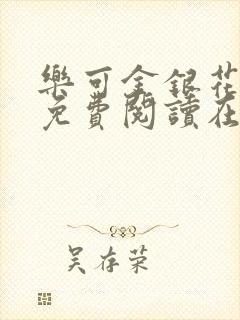 樂可金銀花
免費閱讀在
吴存荣